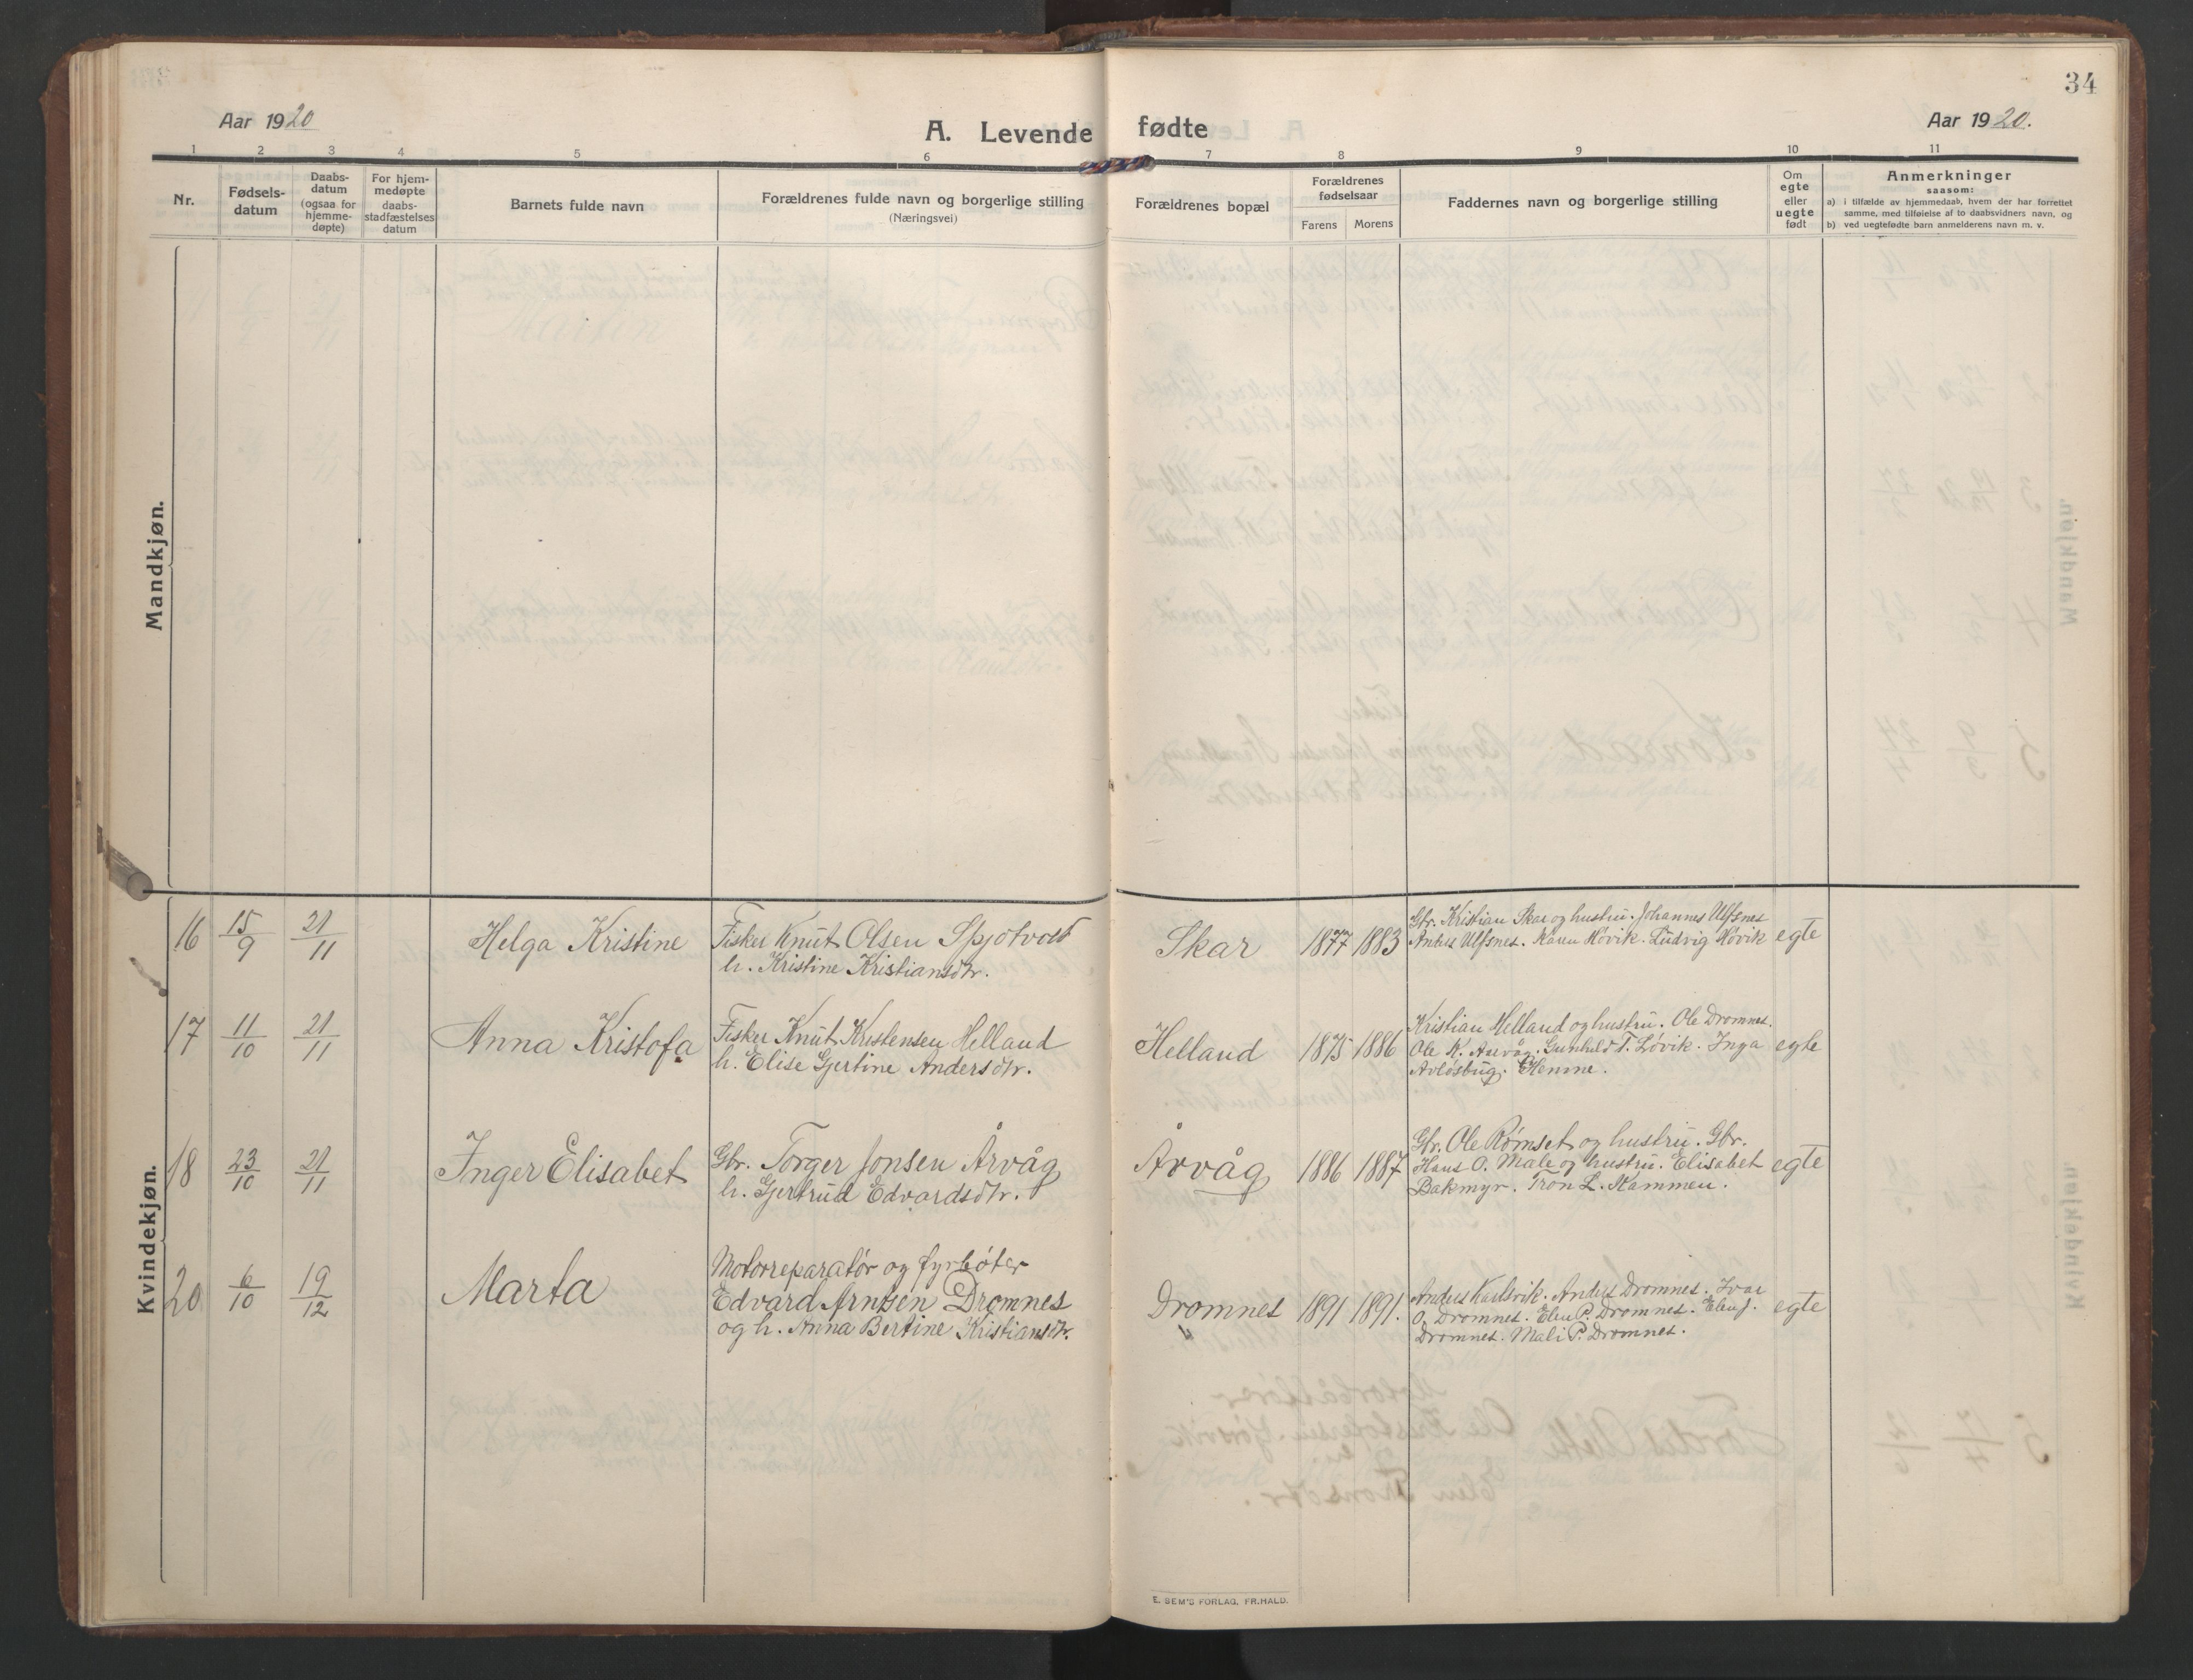 34
Aar 1920
A. Levende fødte
Aar 1920.
1 2 3 4 5 6 7 8 9 10 11
Nr.
Fødsels-
datum
Daabs-
datum
(ogsaa for
hjemme-
døpte)
For hjem-
medøpte
daabs-
stadfæstelses
datum
Barnets fulde navn
Forældrenes fulde navn og borgerlige stilling
(Næringsvei)
Forældrenes bopæl
Forældrenes
fødselsaar
Farens Morens
Faddernes navn og borgerlige stilling
Om
egte
eller
uegte
født
Anmerkninger
saasom:
a) i tilfælde av hjemmedaab, hvem der har forrettet
samme, med tilføielse af to daabsvidners navn, og
b) ved uegtefødte barn anmelderens navn m. v.
Mandkjøn.
Kvindekjøn.
16 15/9 21/11 Helga Kristine
Fisker Knut Olsen Spjøtvold
h. Kristine Kristiansdtr.
Skar 1877 1883
Gbr. Kristian Skar og hustru. Johannes Ulfsnes
Anders Ulfsnes. Karen Høvik. Ludvig Høvik
egte
17 11/10 21/11 Anna Kristofa
Fisker Knut Kristensen Helland
h. Elise Gjertine Andersdtr.
Helland 1875 1886
Kristian Helland og hustru. Ole Dromnes.
Ole K. Aarvåg. Gunhild T. Løvik. Inga
Avløsbug. Hemne.
egte
18 23/10 21/11 Inger Elisabet
Gbr. Torger Jonsen Årvåg
h. Gjertrud Edvardsdtr.
Årvåg 1886 1887
Gbr. Ole Rømset og hustru. Gbr.
Hans O. Male og hustru. Elisabet
Bakmyr. Tron L. Stammen.
egte
20 6/10 19/12 Marta
Motorreparatør og fyrbøter
Edvard Arntsen Dromnes
og h. Anna Bertine Kristiansdtr.
Dromnes 1891 1891.
Anders Karlsvik. Anders Dromnes. Ivar
O. Dromnes. Elen P. Dromnes. Elen J.
Dromnes. Mali P. Dromnes.
egte
E. SEM'S FORLAG, FR.HALD.